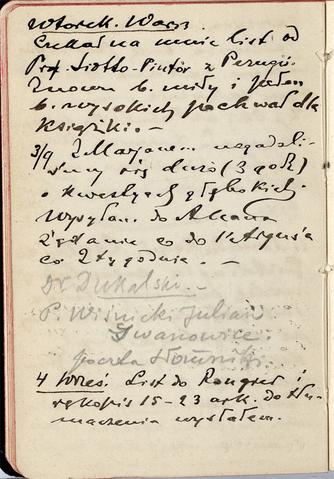 Wtorek. Warsz.
Czekał na mnie list od
Prof. Siotto-Pintór z Perugii.
Znowu b. miły i pełen
b. wysokich pochwał dla
książki. —
3/9 Z Marjanem nagadali-
śmy się dużo (3 godz)
o kwestyach głębokich.
Wysyłam do
co do
co 2 tygodnie. —
Dr. Dukalski. —
P. Wiśnicki Julian
Iwanowice.
poczta Słomniki.
4 Wrześ. List do i
rękopis 15–23 ark. do tłu-
maczenia wysłałem.